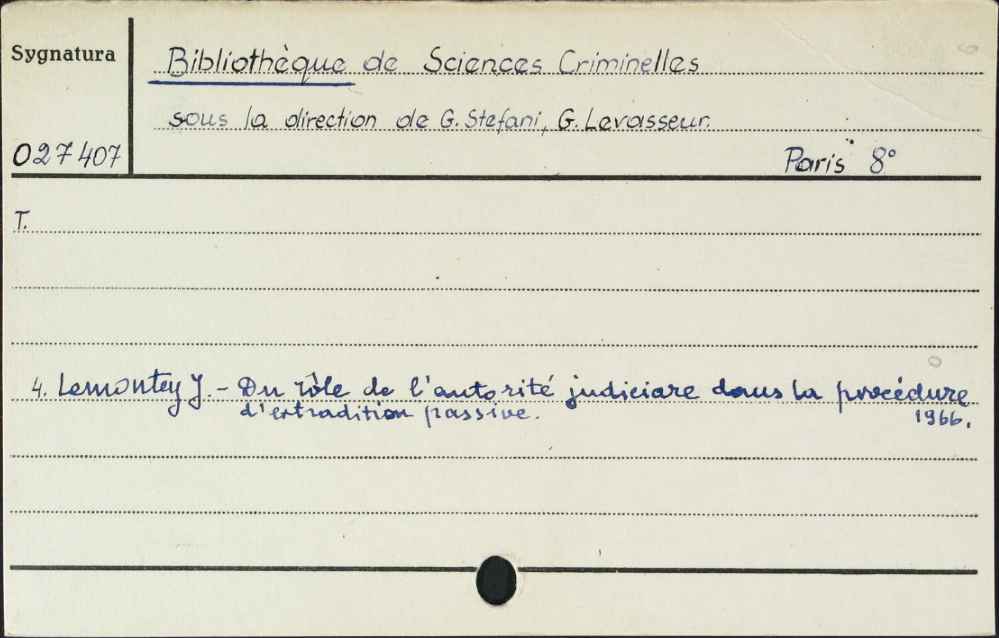 Sygnatura
Bibliothèque de Sciences Criminelles
sous la direction de G. Stefani, G. Levasseur.
027407
Paris 8°
T.
4. Lemontey J. - Du rôle de l'autorité judiciare dans la procédure
d'extradition passive. 1966.